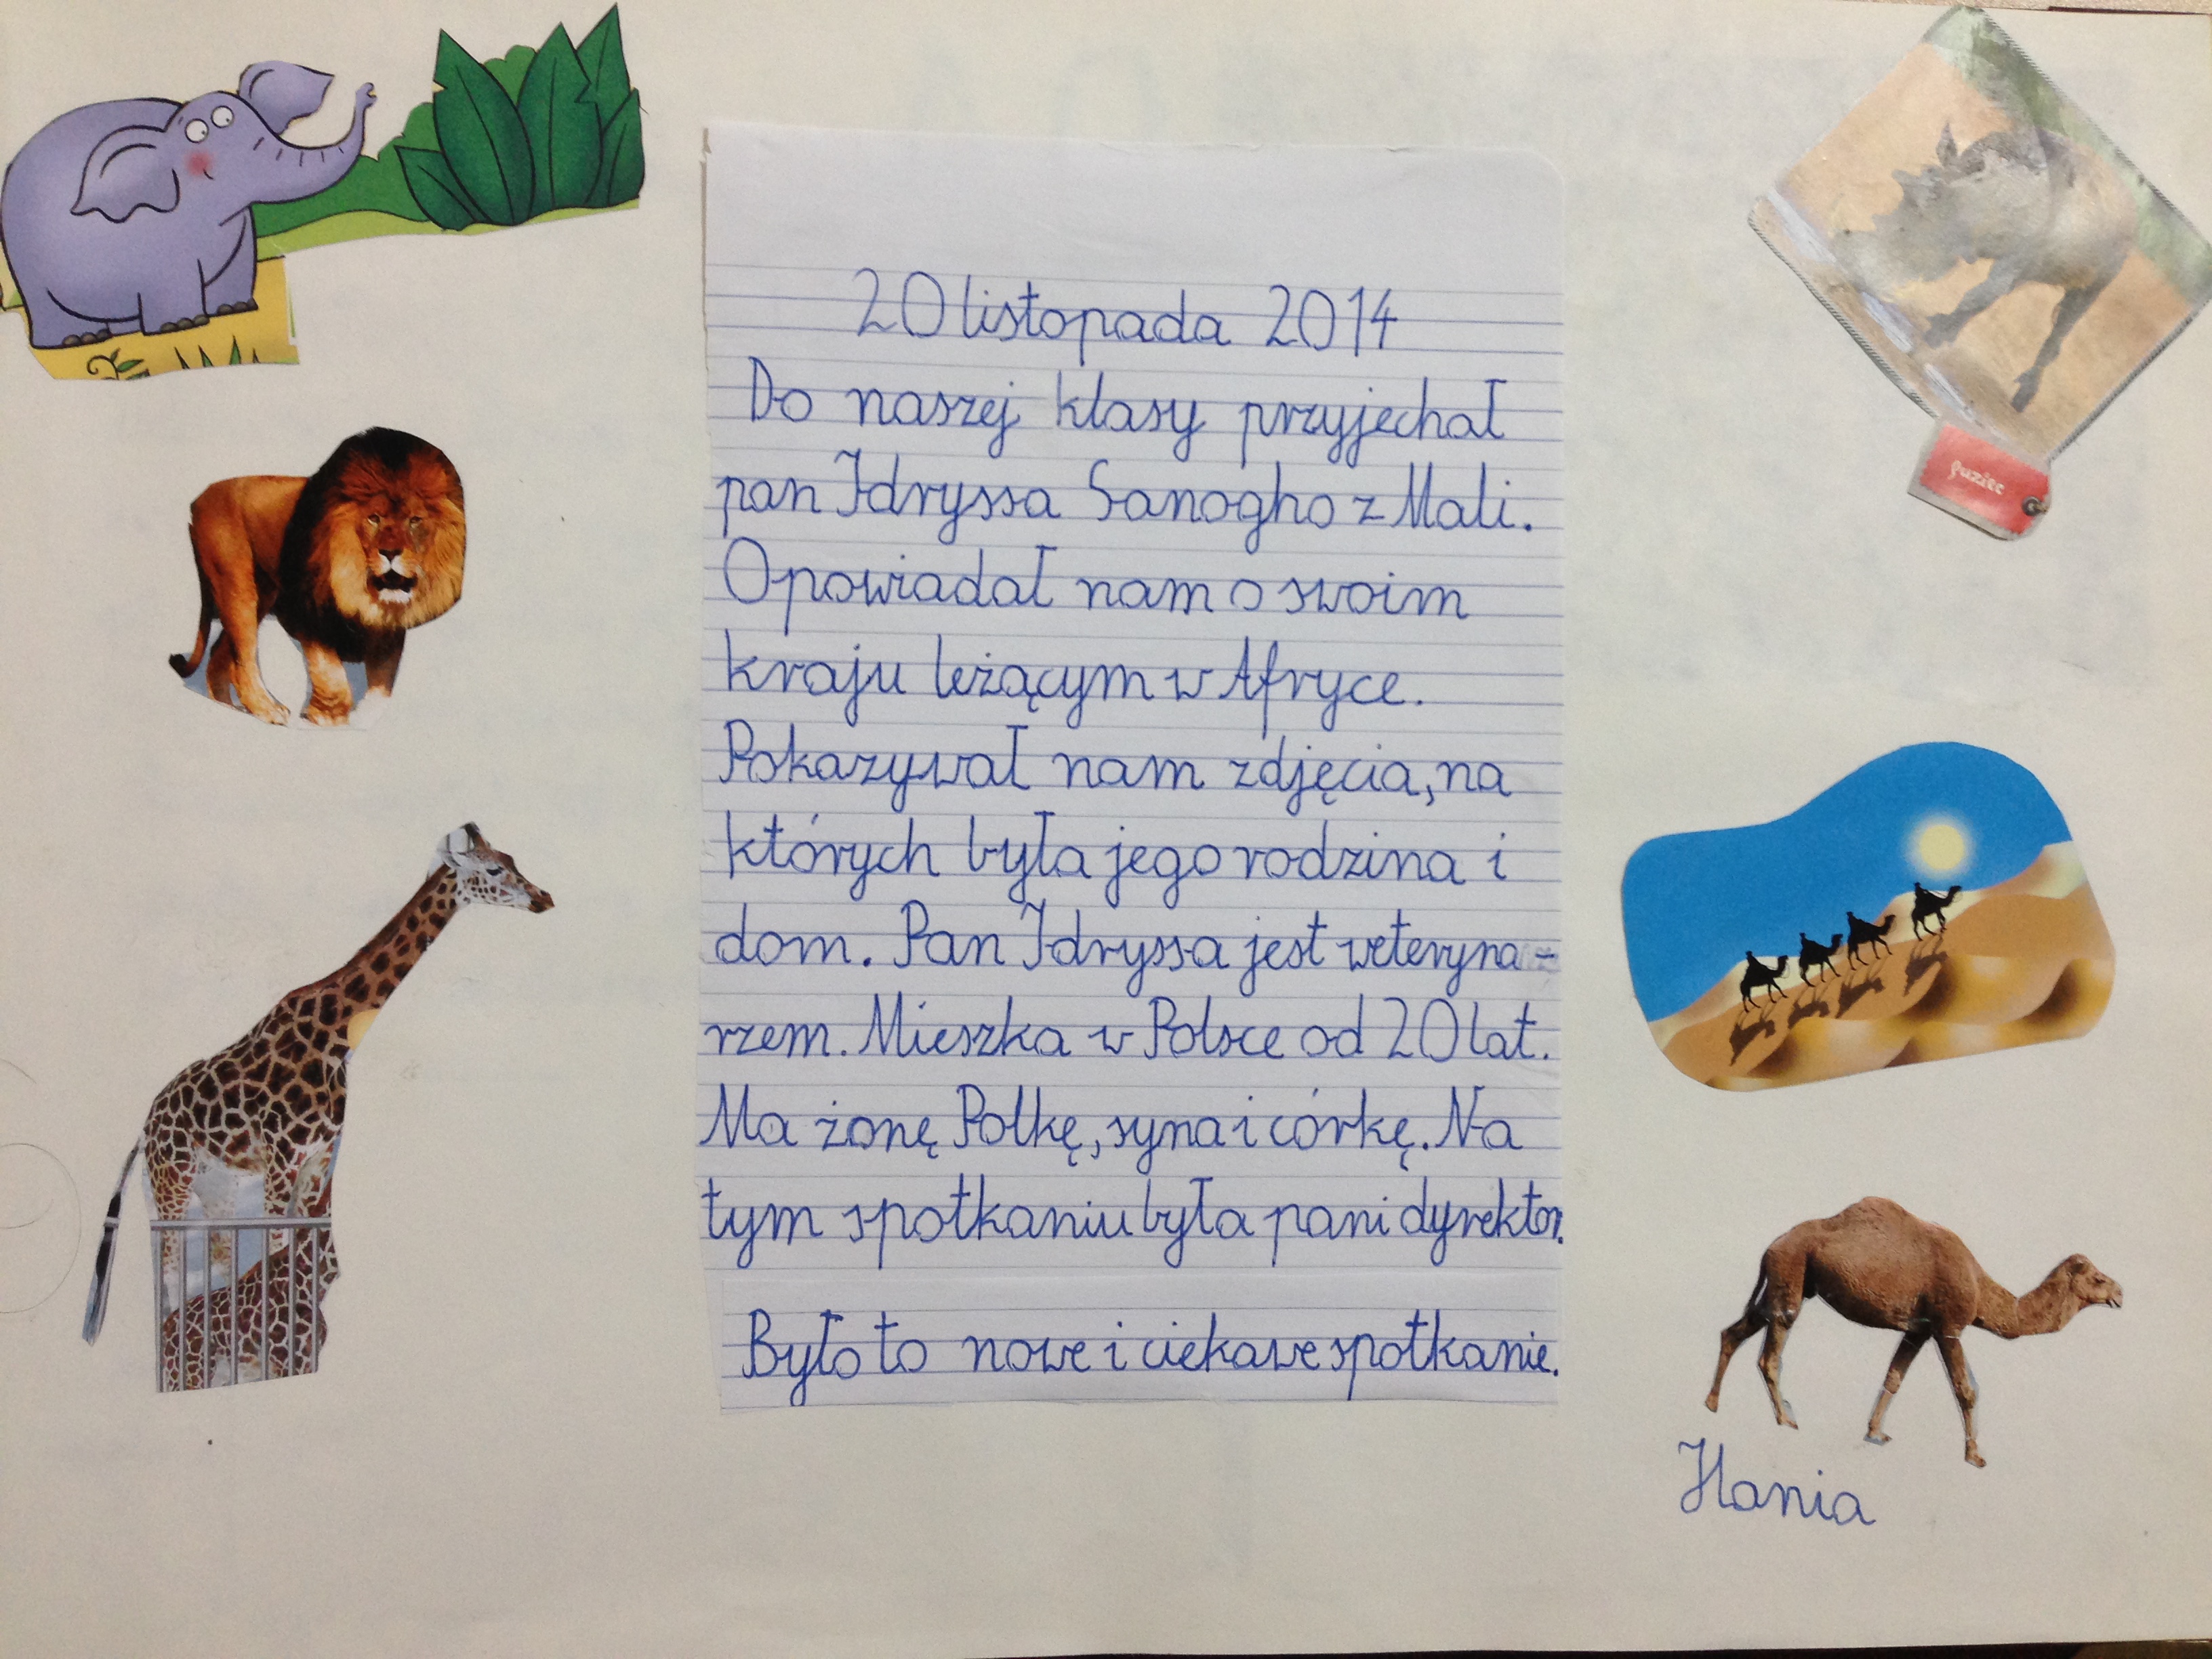 20 listopada 2014
Do naszej klasy przyjechał
pan Idryssa Sanogho z Mali.
Opowiadał nam o swoim
kraju leżącym w Afryce.
Pokazywał nam zdjęcia, na
których była jego rodzina i
dom. Pan Idryssa jest weteryna-
rzem. Mieszka w Polsce od 20 lat.
Ma żonę Polkę, syna i córkę. Na
tym spotkaniu była pani dyrektor.
Było to nowe i ciekawe spotkanie.
guziec
Hania